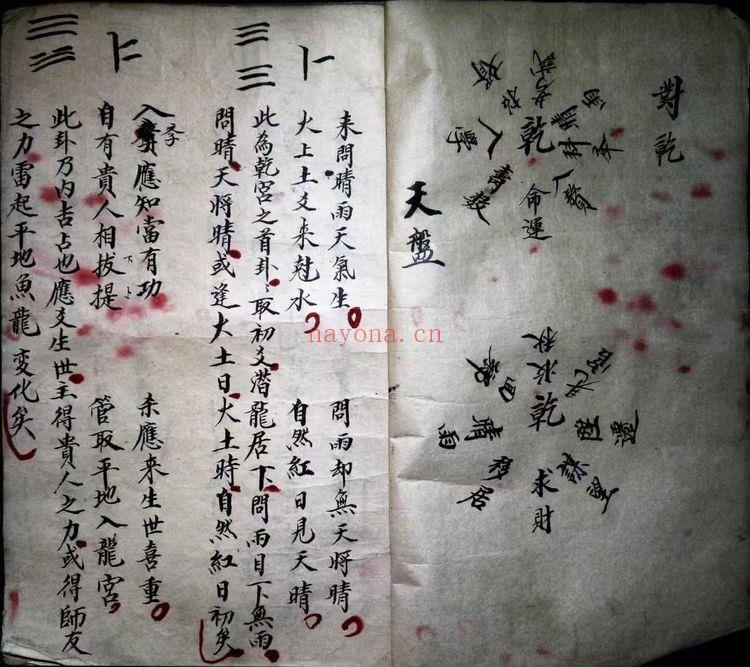 對乾
乾
命運
人學
壽數
科
考試
乾
求財
移居
晴雨
陞遷
天盤
卜
來問晴雨天氣生 問雨却無天將晴
火上土爻來尅水 自然紅日見天晴
此為乾宮之首卦取初爻潛龍居下問雨目下無雨
問晴天將晴或逢火土日火土時自然紅日初矣
入學應知當有功 未應來生世喜重
自有貴人相拔提 管取平地入龍宮
此卦乃內吉占也應爻生世主得貴人之力或得師友
之力雷起平地魚龍變化矣
nayona.cn